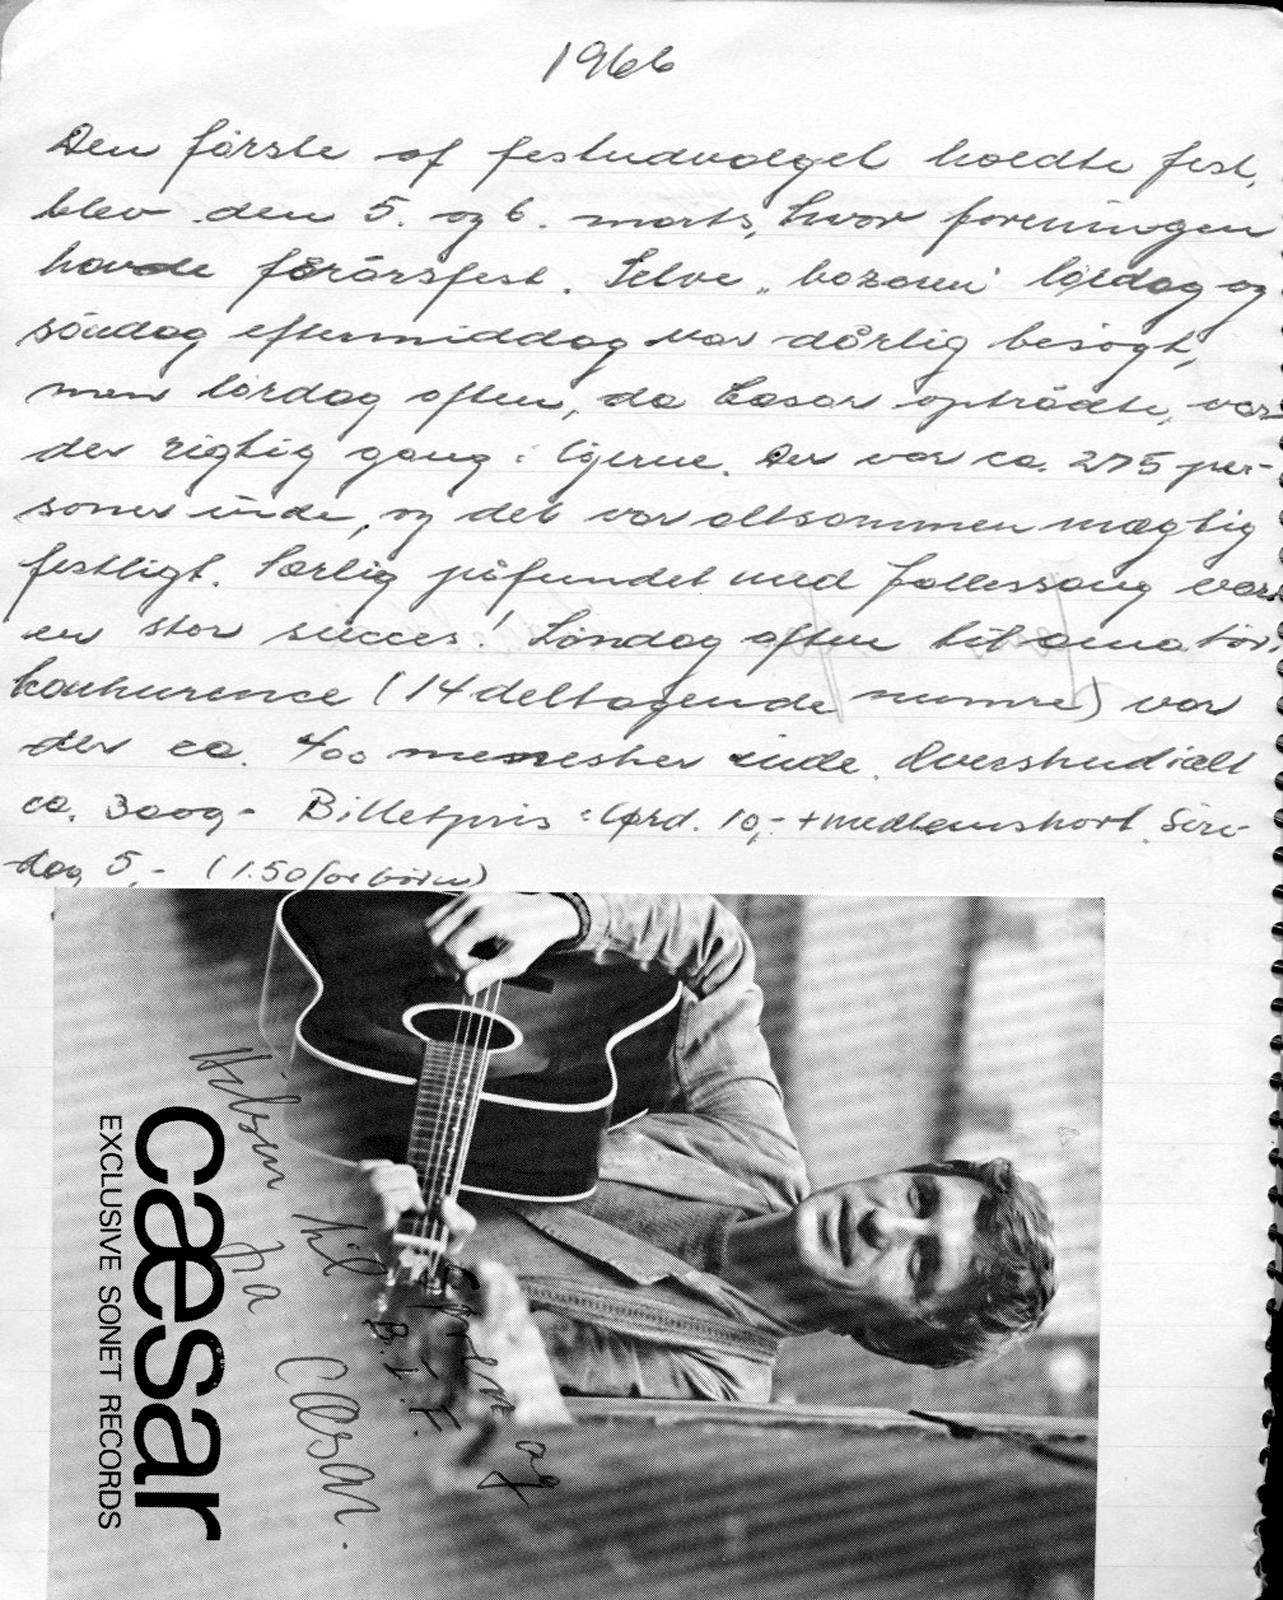 1966
Den første af festudvalget holdte fest,
blev den 5. og 6. marts, hvor foreningen
havde forårsfest. Selve "bazaren" lørdag og
søndag eftermiddag var dårlig besøgt,
men lørdag aften, da Cæsar optrådte, var
der rigtig gang i løjerne. Der var ca. 275 per-
soner inde, og det var altsammen mægtig
festligt. Særlig påfundet med fællessang var
en stor succes! Søndag aften til amatør-
konkurence (14 deltagende numre) var
der ca. 400 mennesker inde. Overskud ialt
ca. 3000,- Billetpris: Lørd. 10,- + medlemskort. Søn-
dag 5,- (1.50 for børn)
cæsar
EXCLUSIVE SONET RECORDS
Hilsen til og
B.I.F.
fra Cæsar.